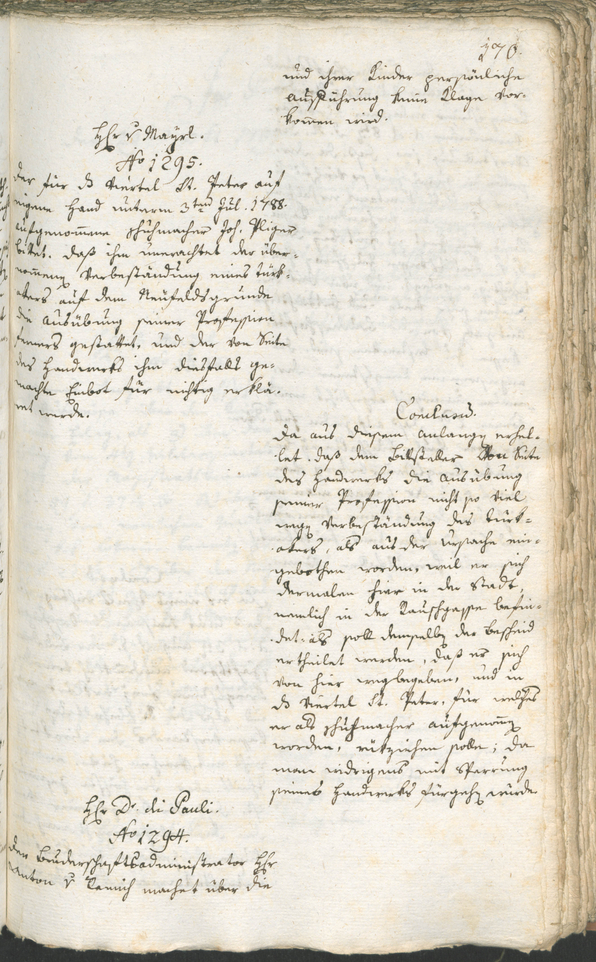 176.
und ihrer Kinder persönliche
Aufführung keine Klage vor-
kommen wird.
Hr v Mayrl.
No 1295.
Der für ds Viertel St. Peter auf
eigene Hand unterm 3ten Jul. 1788
aufgenommene Schuhmacher Joh. Pliger
bitet, daß ihm unerachtet der über-
nommenen Verbeständung eines türk-
akers auf dem Neufeldsgrunde
die Ausübung seiner Profession
ferners gestattet, und der von Seite
des Handwerks ihm diesfalls ge-
machte Einbot für nichtig erklä-
ret werde.
Conclusum.
Da aus diesem Anlangen erhel-
let, daß dem Bittsteller von Seite
des Handwerks die Ausübung
seiner Profession nicht so viel
wegen Verbeständung des türk-
akers, als aus der Ursache ein-
gebothen worden, weil er sich
dermalen hier in der Stadt,
nemlich in der Rauschgasse befin-
det: als soll demselben der Bescheid
ertheilet werden, daß er sich
von hier wegbegeben, und in
ds Viertel St. Peter, für welches
er als Schuhmacher aufgenommen
worden, rükziehen solle; da
man widrigens mit Sperrung
seines Handwerks fürgehen würde
Hr Dr. di Pauli.
No 1294.
Der Bruderschaftsadministrator Hr
Anton v machet über die